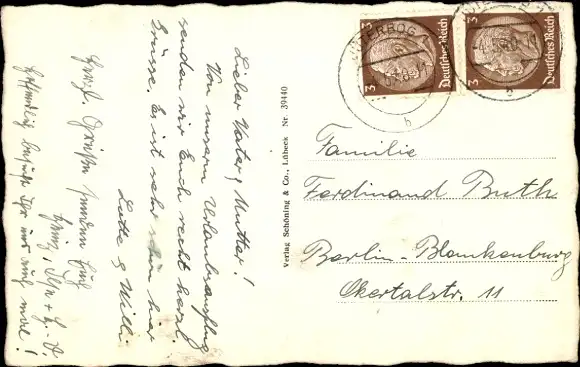 Lieber Vater, Mutter!
Von unserm Urlaubsausflug
senden wir Euch recht herzl.
Grüsse. Es ist sehr schön hier
Lotte & Willi
Herzl. Grüße senden Euch
Heinz,
hoffentlich besucht Ihr uns auch mal!
Verlag Schöning & Co., Lübeck Nr. 39440
3
Deutsches Reich
3
Deutsches Reich
JÜTERBOG
b
Familie
Ferdinand Buth
Berlin-Blankenburg
Okertalstr. 11